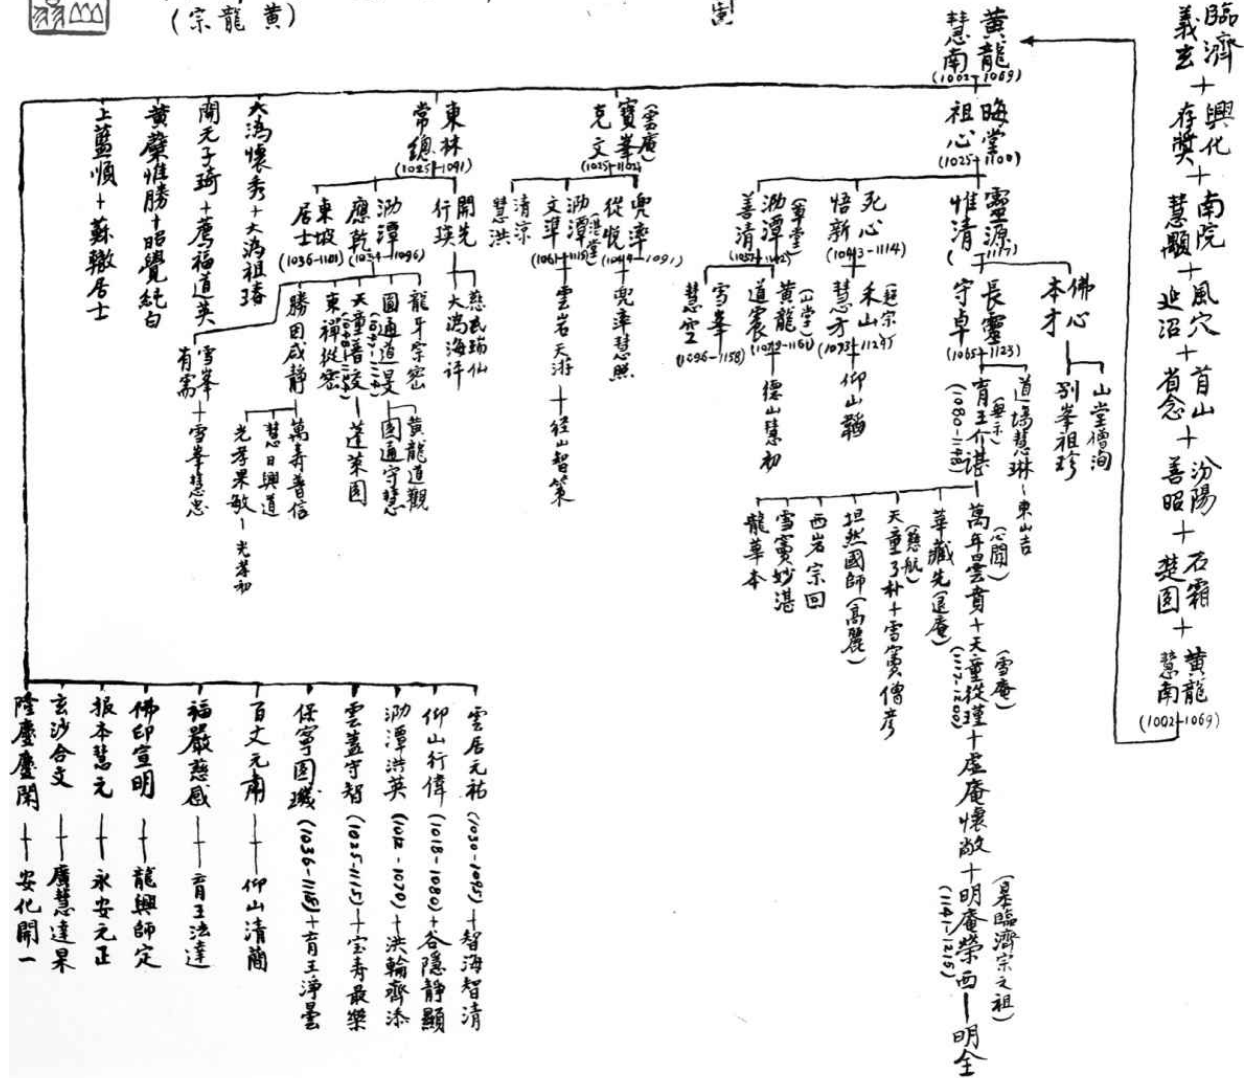 臨濟義玄+興化存奬+南院慧顒+風穴延沼+首山省念+汾陽善昭+石霜楚圓+黄龍慧南
(1002-1069)
(黄龍宗)
黄龍慧南
(1002-1069)
晦堂祖心
(1025-1100)
靈源惟清(-1117)
佛心本才
山堂僧洵
別峯祖珍
長靈守卓
(1065-1123)
道場慧琳-東山吉
(無示)
育王介諶
(1080-1148)
(心聞)
萬年曇賁+天童從瑾+虚庵懷敞+明庵榮西-明全
(雪庵)
(1117-1200)
(1141-1215)
(是臨濟宗之祖)
華藏先(退庵)
天童了朴+雪竇僧彦
(慈航)
坦然國師(高麗)
西岩宗回
雪竇妙湛
龍華本
死心悟新
(1043-1114)
(超宗)
禾山慧方
(1073-1129)
仰山鞱
(草堂)
泐潭善清
(1057-1142)
(山堂)
黄龍道震
(1079-1161)
德山慧初
雪峯慧空
(1096-1158)
(雲庵)
寶峯克文
(1025-1102)
兜率從悅
(1044-1091)
兜率慧照
(湛堂)
泐潭文準
(1061-1115)
雲岩天游+径山智策
清凉慧洪
東林常總
(1025-1091)
開先行瑛
慈氏瑞仙
大潙海評
泐潭應乾
(1034-1096)
龍牙宗密
圓通道旻
黄龍道觀
圓通守慧
天童普交
蓬萊圓
東禪從密
勝因咸靜
萬壽普信
慧日興道
光孝果敏-光孝初
東坡居士
(1036-1101)
大潙懷秀+大潙祖瑃
開元子琦+薦福道英
雪峯有需+雪峯慧忠
黄檗惟勝+昭覺純白
上藍順+蘇轍居士
雲居元祐(1030-1095)+智海智清
仰山行偉(1018-1080)+谷隱靜顯
泐潭洪英(1012-1070)+洪輪齊添
雲蓋守智(1025-1115)+宝寿最樂
保寧圓璣(1036-1118)+育王淨曇
百丈元肅+仰山清蕳
福嚴慈感+育王法達
佛印宣明+龍興師定
报本慧元+永安元正
玄沙合文+廣慧達杲
隆慶慶閑+安化開一